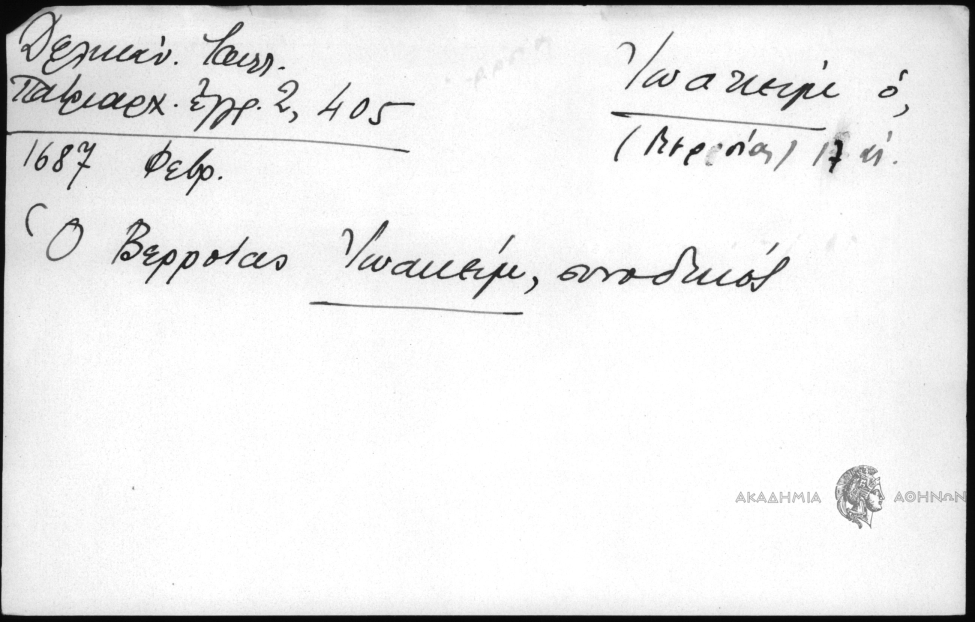 Δελικάν. Καλλ.
Πατριαρχ. Ἔγγρ. 2, 405
1687 Φεβρ.
Ἰωακείμ ὁ,
(Βερροίας) 17 αἰ.
Ὁ Βερροίας Ἰωακείμ, συνοδικός
ΑΚΑΔΗΜΙΑ ΑΘΗΝΩΝ